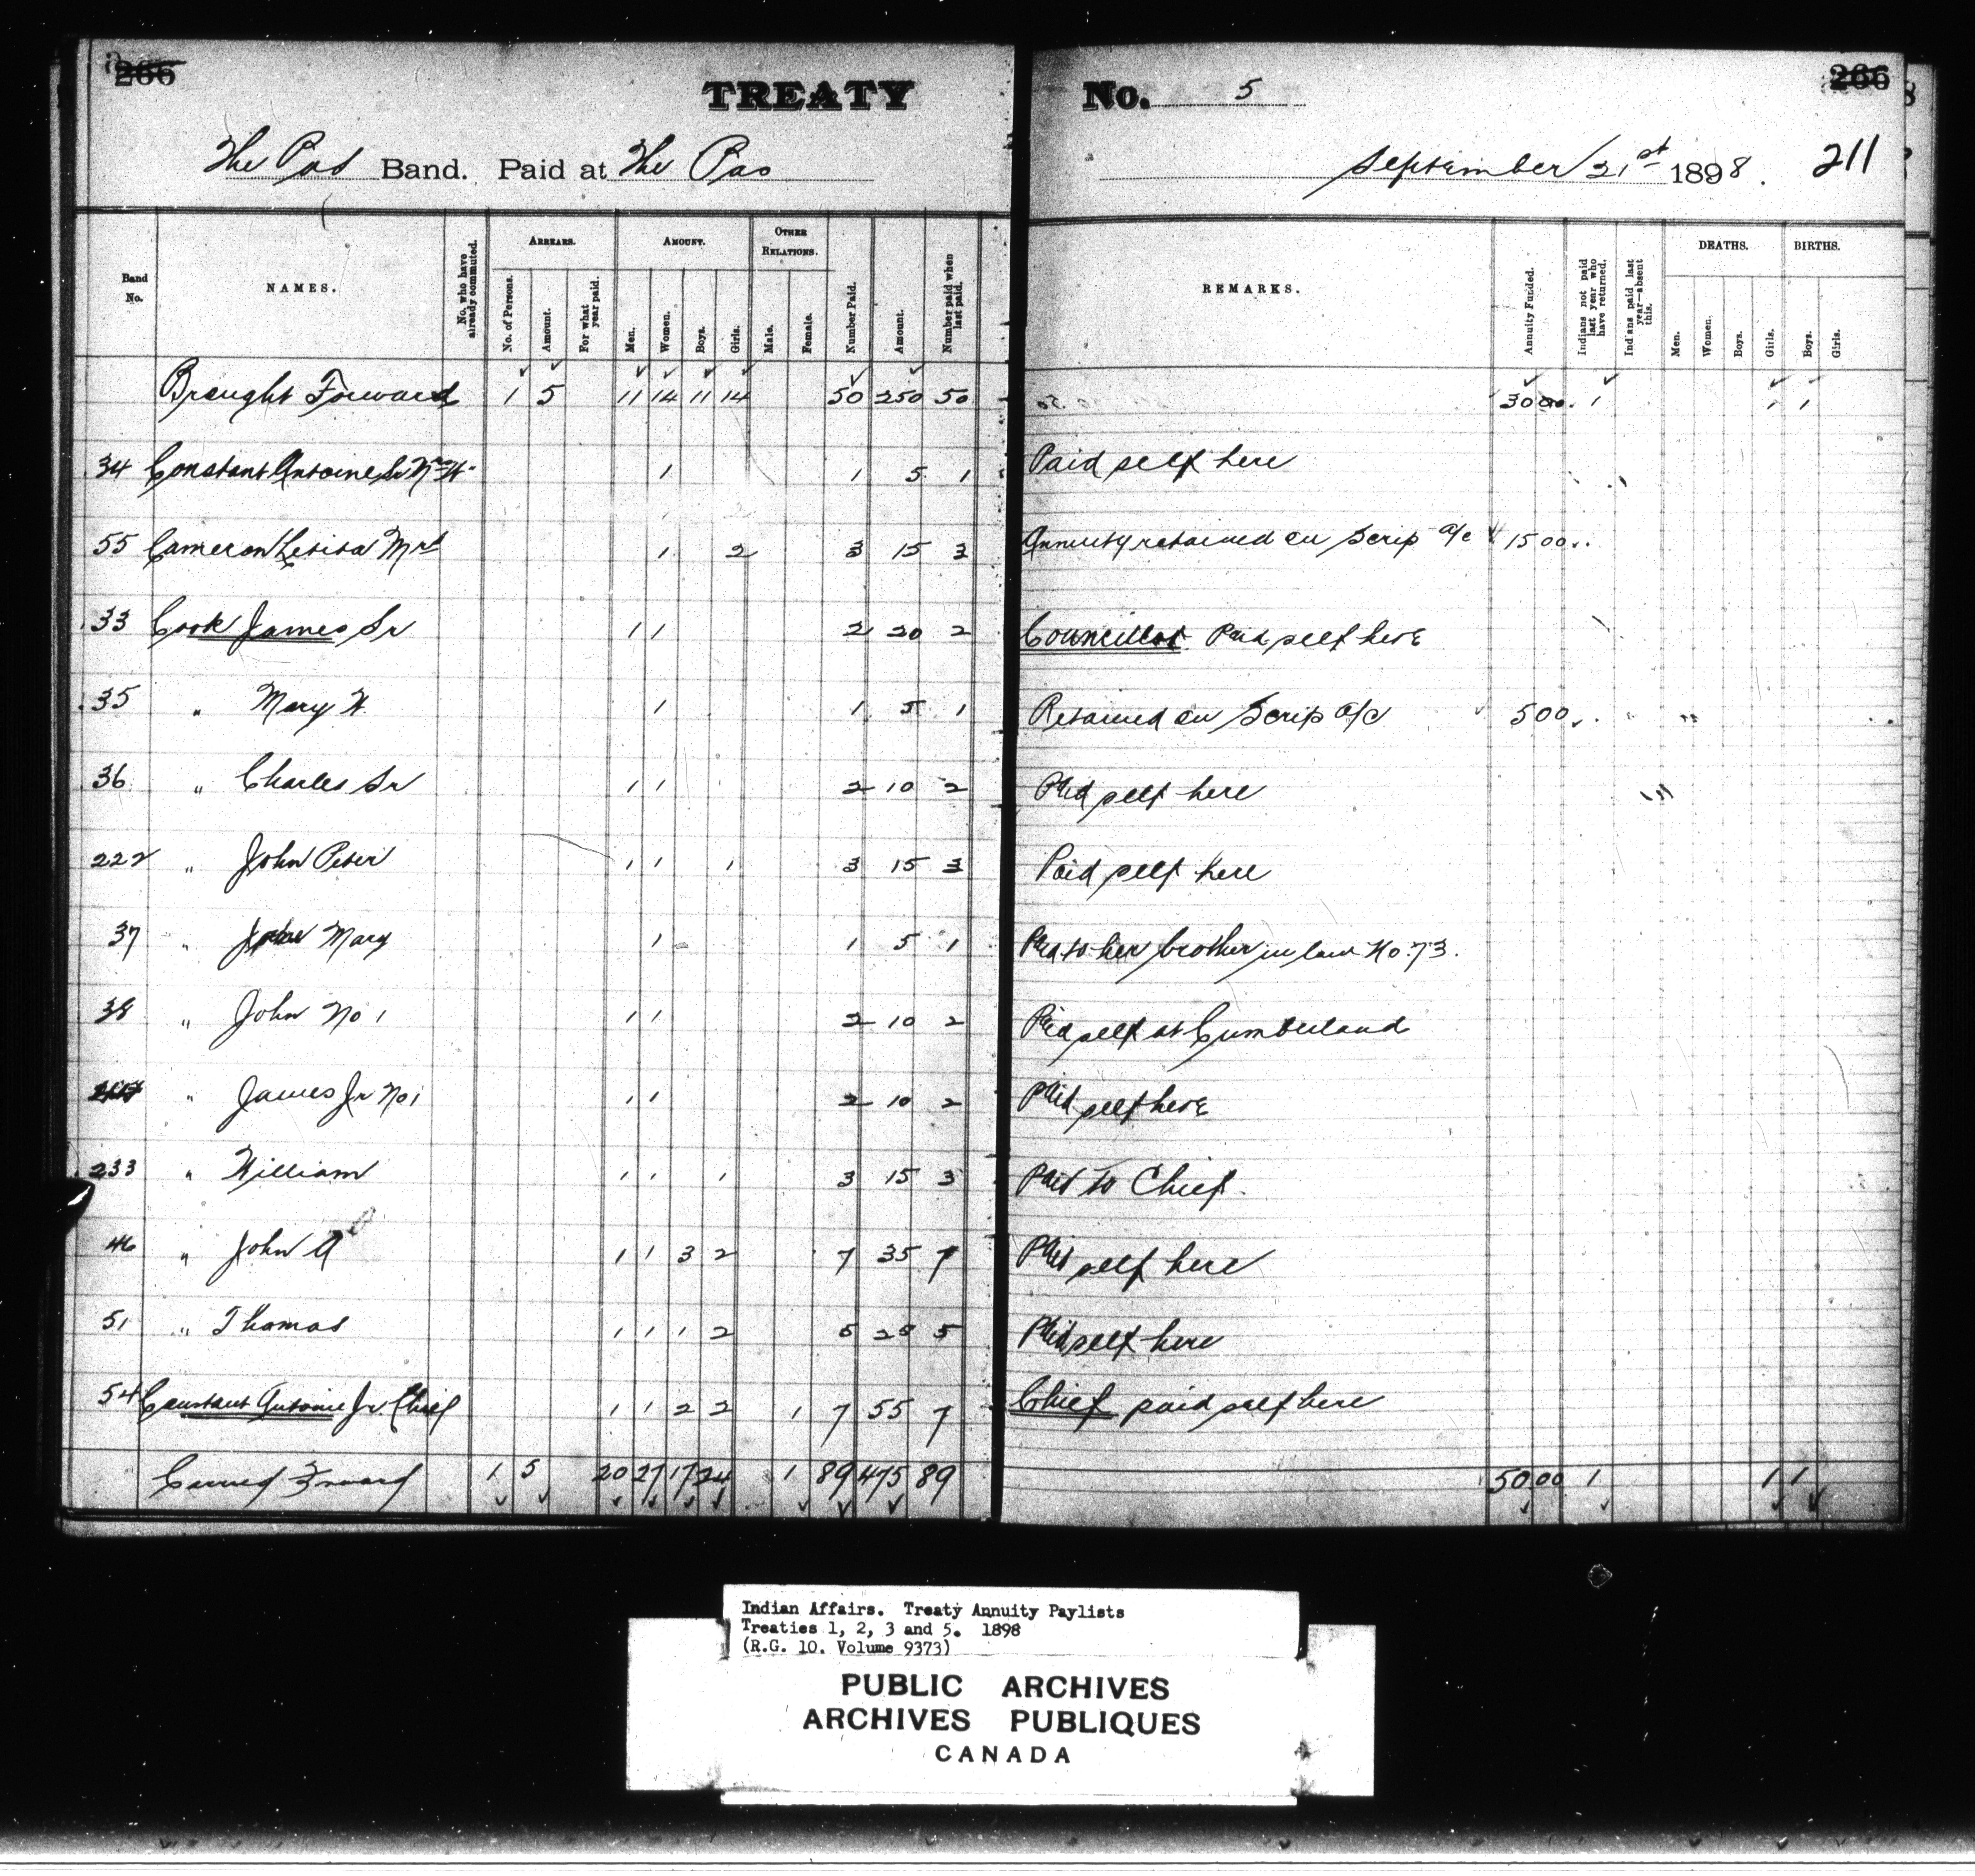 266 TREATY No. 5 266
The Pas Band. Paid at The Pas September 21st 1898. 211
Band No. NAMES. No. who have already commuted. ARREARS. No. of Persons. Amount. For what year paid. AMOUNT. Men. Women. Boys. Girls. OTHER RELATIONS. Male. Female. Number Paid. Amount. Number paid when last paid. REMARKS. Annuity Funded. Indians not paid last year who have returned. Indians paid last year—absent this. DEATHS. Men. Women. Boys. Girls. BIRTHS. Boys. Girls.
Brought Forward 1 5 11 14 11 14 50 250 50 3000 1 1 1
34 Constant Antoine Sr 1 1 5 1 Paid self here
55 Cameron Letitia Mrs 1 2 3 15 3 Annuity retained on Scrip a/c 1500
33 Cook James Sr 1 1 2 20 2 Councillor Paid self here
35 " Mary W. 1 1 5 1 Retained on Scrip a/c 500
36 " Charles Sr 1 1 2 10 2 Paid self here
222 " John Peter 1 1 1 3 15 3 Paid self here
37 " Mary 1 1 5 1 Paid to her brother in law No. 73.
38 " John No 1 1 1 2 10 2 Paid self at Cumberland
" James Jr No 1 1 1 2 10 2 Paid self here
233 " William 1 1 1 3 15 3 Paid to Chief.
46 " John A 1 1 3 2 7 35 7 Paid self here
51 " Thomas 1 1 1 2 5 25 5 Paid self here
54 Constant Antoine Jr. Chief 1 1 2 2 1 7 55 7 Chief paid self here
Carried Forward 1 5 20 27 17 24 1 89 475 89 5000 1 1 1
Indian Affairs. Treaty Annuity Paylists
Treaties 1, 2, 3 and 5. 1898
(R.G. 10. Volume 9373)
PUBLIC ARCHIVES
ARCHIVES PUBLIQUES
CANADA